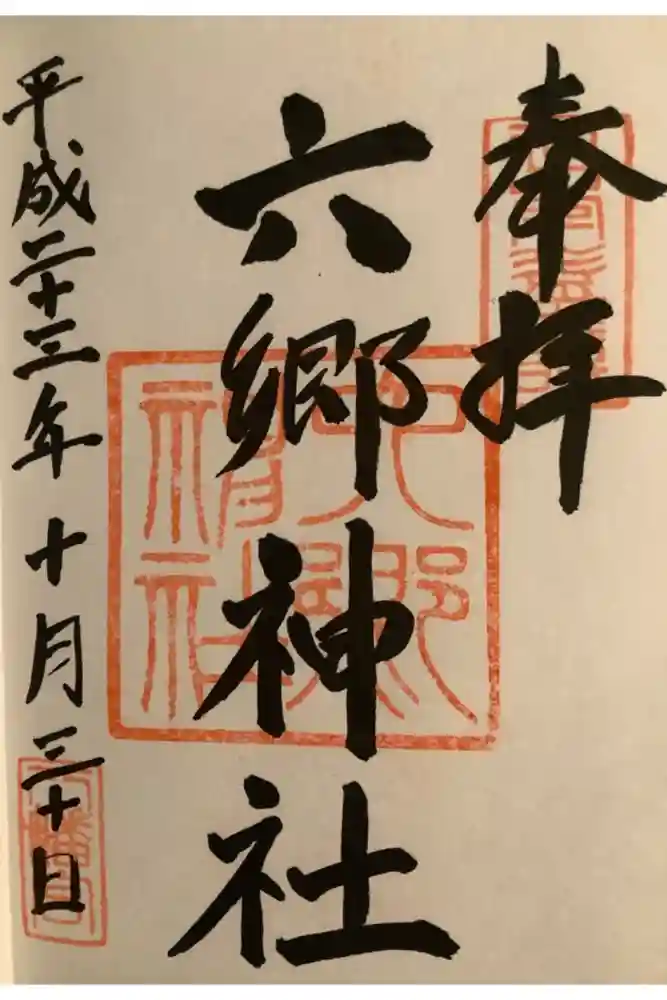 奉拝
六郷神社
平成二十三年十月三十日